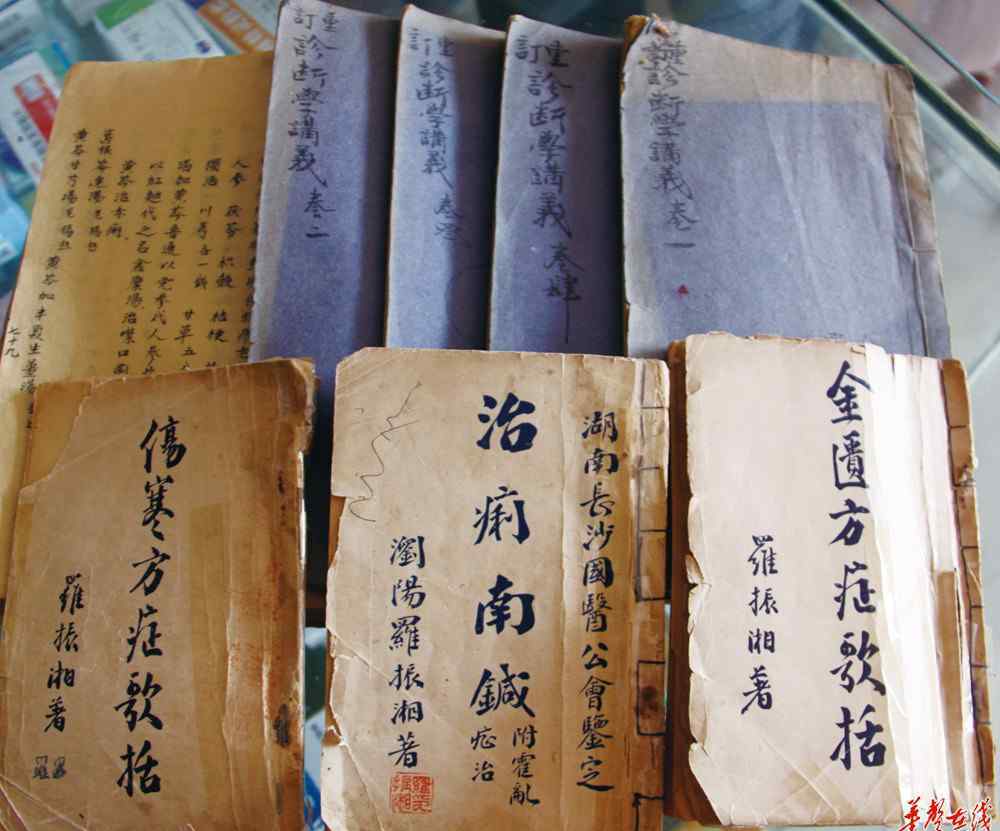 重訂診断學講義 卷二
重訂診断學講義
重訂診断學講義 卷肆
診断學講義 卷一
人參 茯苓 枳殼 桔梗
獨活 川芎各一錢 甘草五
以紅麯代之名倉廩湯治噤口
黃芩治赤痢
葛根芩連湯見楊
黃芩芍湯見楊 黃芩加半夏生薑湯
七十九
傷寒方症歌括
羅振湘著
湖南長沙國醫公會鑒定
治痢南鍼
附霍亂
症治
瀏陽羅振湘著
金匱方症歌括
羅振湘著
華聲在线